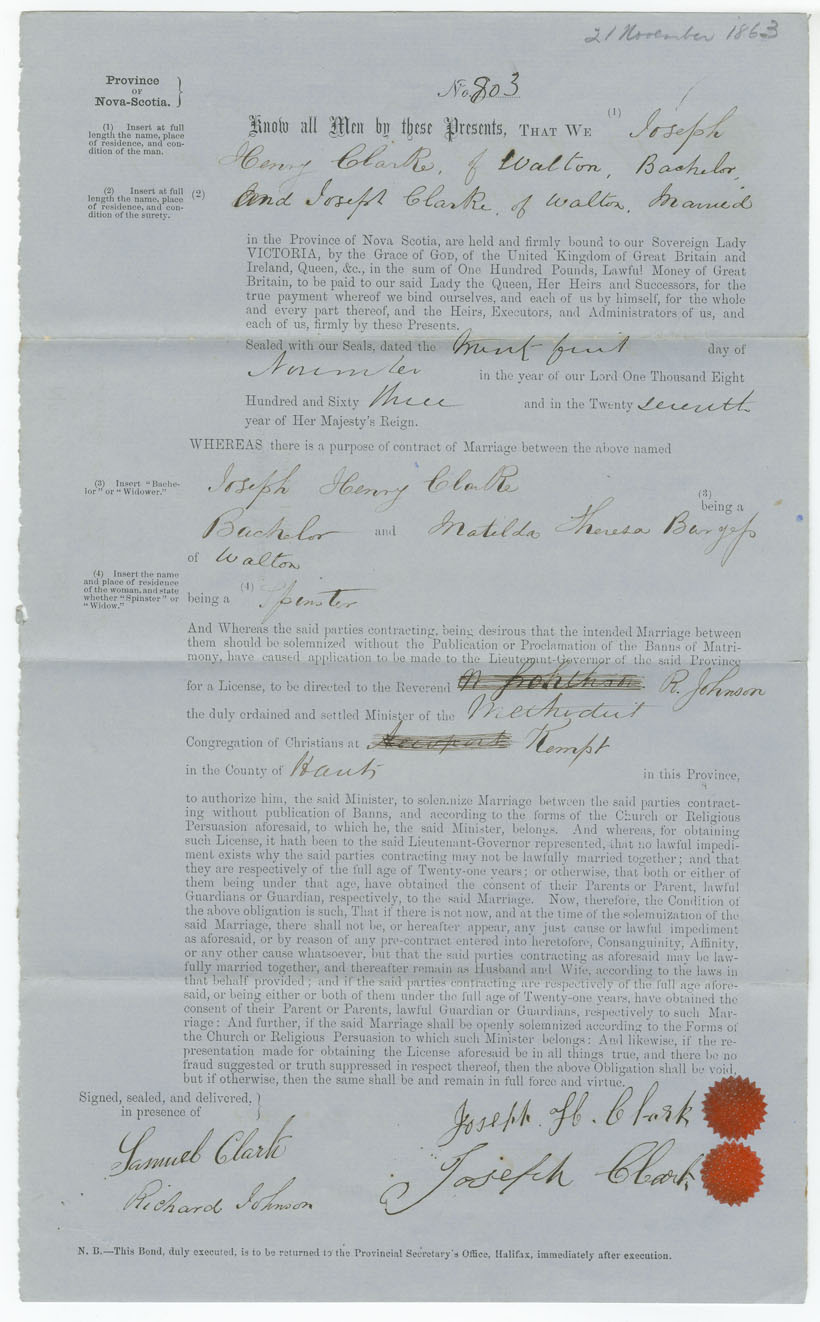 21 November 1863
Province
OF
Nova-Scotia.
No. 803
(1) Insert at full
length the name, place
of residence, and con-
dition of the man.
Know all Men by these Presents, THAT WE (1) Joseph
Henry Clarke, of Walton, Bachelor,
(2) Insert at full
length the name, place
of residence, and con-
dition of the surety.
(2) And Joseph Clarke, of Walton, Married
in the Province of Nova Scotia, are held and firmly bound to our Sovereign Lady
VICTORIA, by the Grace of GOD, of the United Kingdom of Great Britain and
Ireland, Queen, &c., in the sum of One Hundred Pounds, Lawful Money of Great
Britain, to be paid to our said Lady the Queen, Her Heirs and Successors, for the
true payment whereof we bind ourselves, and each of us by himself, for the whole
and every part thereof, and the Heirs, Executors, and Administrators of us, and
each of us, firmly by these Presents.
Sealed with our Seals, dated the Twenty first day of
November in the year of our Lord One Thousand Eight
Hundred and Sixty three and in the Twenty seventh
year of Her Majesty's Reign.
WHEREAS there is a purpose of contract of Marriage between the above named
(3) Insert "Bache-
lor" or "Widower."
Joseph Henry Clarke (3)
being a
Bachelor and Matilda Theresa Burgess
of Walton
(4) Insert the name
and place of residence
of the woman, and state
whether "Spinster" or
"Widow."
being a (4) Spinster
And Whereas the said parties contracting, being desirous that the intended Marriage between
them should be solemnized without the Publication or Proclamation of the Banns of Matri-
mony, have caused application to be made to the Lieutenant-Governor of the said Province
for a License, to be directed to the Reverend R. Johnson
the duly ordained and settled Minister of the Methodist
Congregation of Christians at Kempt
in the County of Hants in this Province,
to authorize him, the said Minister, to solemnize Marriage between the said parties contract-
ing without publication of Banns, and according to the forms of the Church or Religious
Persuasion aforesaid, to which he, the said Minister, belongs. And whereas, for obtaining
such License, it hath been to the said Lieutenant-Governor represented, that no lawful impedi-
ment exists why the said parties contracting may not be lawfully married together; and that
they are respectively of the full age of Twenty-one years; or otherwise, that both or either of
them being under that age, have obtained the consent of their Parents or Parent, lawful
Guardians or Guardian, respectively, to the said Marriage. Now, therefore, the Condition of
the above obligation is such, That if there is not now, and at the time of the solemnization of the
said Marriage, there shall not be, or hereafter appear, any just cause or lawful impediment
as aforesaid, or by reason of any pre-contract entered into heretofore, Consanguinity, Affinity,
or any other cause whatsoever, but that the said parties contracting as aforesaid may be law-
fully married together, and thereafter remain as Husband and Wife, according to the laws in
that behalf provided; and if the said parties contracting are respectively of the full age afore-
said, or being either or both of them under the full age of Twenty-one years, have obtained the
consent of their Parent or Parents, lawful Guardian or Guardians, respectively to such Mar-
riage: And further, if the said Marriage shall be openly solemnized according to the Forms of
the Church or Religious Persuasion to which such Minister belongs: And likewise, if the re-
presentation made for obtaining the License aforesaid be in all things true, and there be no
fraud suggested or truth suppressed in respect thereof, then the above Obligation shall be void,
but if otherwise, then the same shall be and remain in full force and virtue.
Signed, sealed, and delivered,
in presence of
Joseph. H. Clark
Samuel Clark
Joseph Clark
Richard Johnson
N. B.—This Bond, duly executed, is to be returned to the Provincial Secretary's Office, Halifax, immediately after execution.